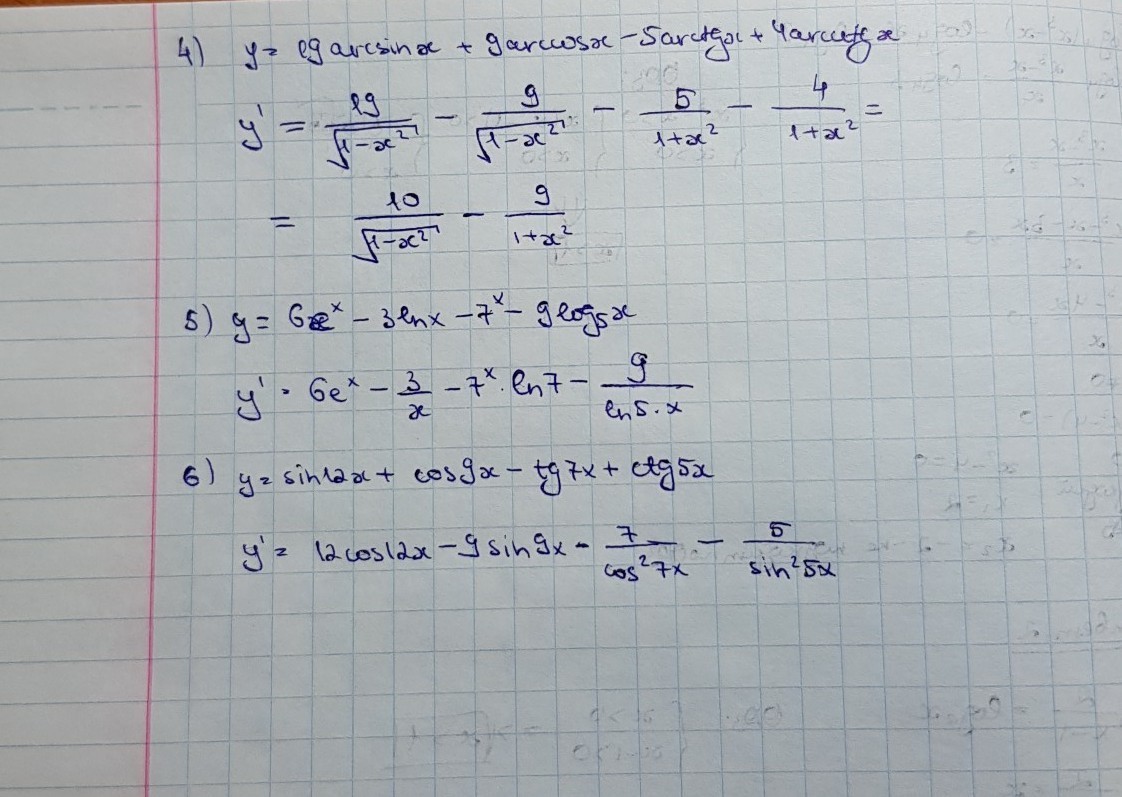 4) y = 19 arcsin x + 9 arccos x - 5 arctg x + 4 arcctg x
y' = 19/√(1-x²) - 9/√(1-x²) - 5/(1+x²) - 4/(1+x²) =
= 10/√(1-x²) - 9/(1+x²)
5) y = 6e^x - 3 ln x - 7^x - 9 log₅x
y' = 6e^x - 3/x - 7^x · ln 7 - 9/(ln 5 · x)
6) y = sin 12x + cos 9x - tg 7x + ctg 5x
y' = 12 cos 12x - 9 sin 9x - 7/cos² 7x - 5/sin² 5x